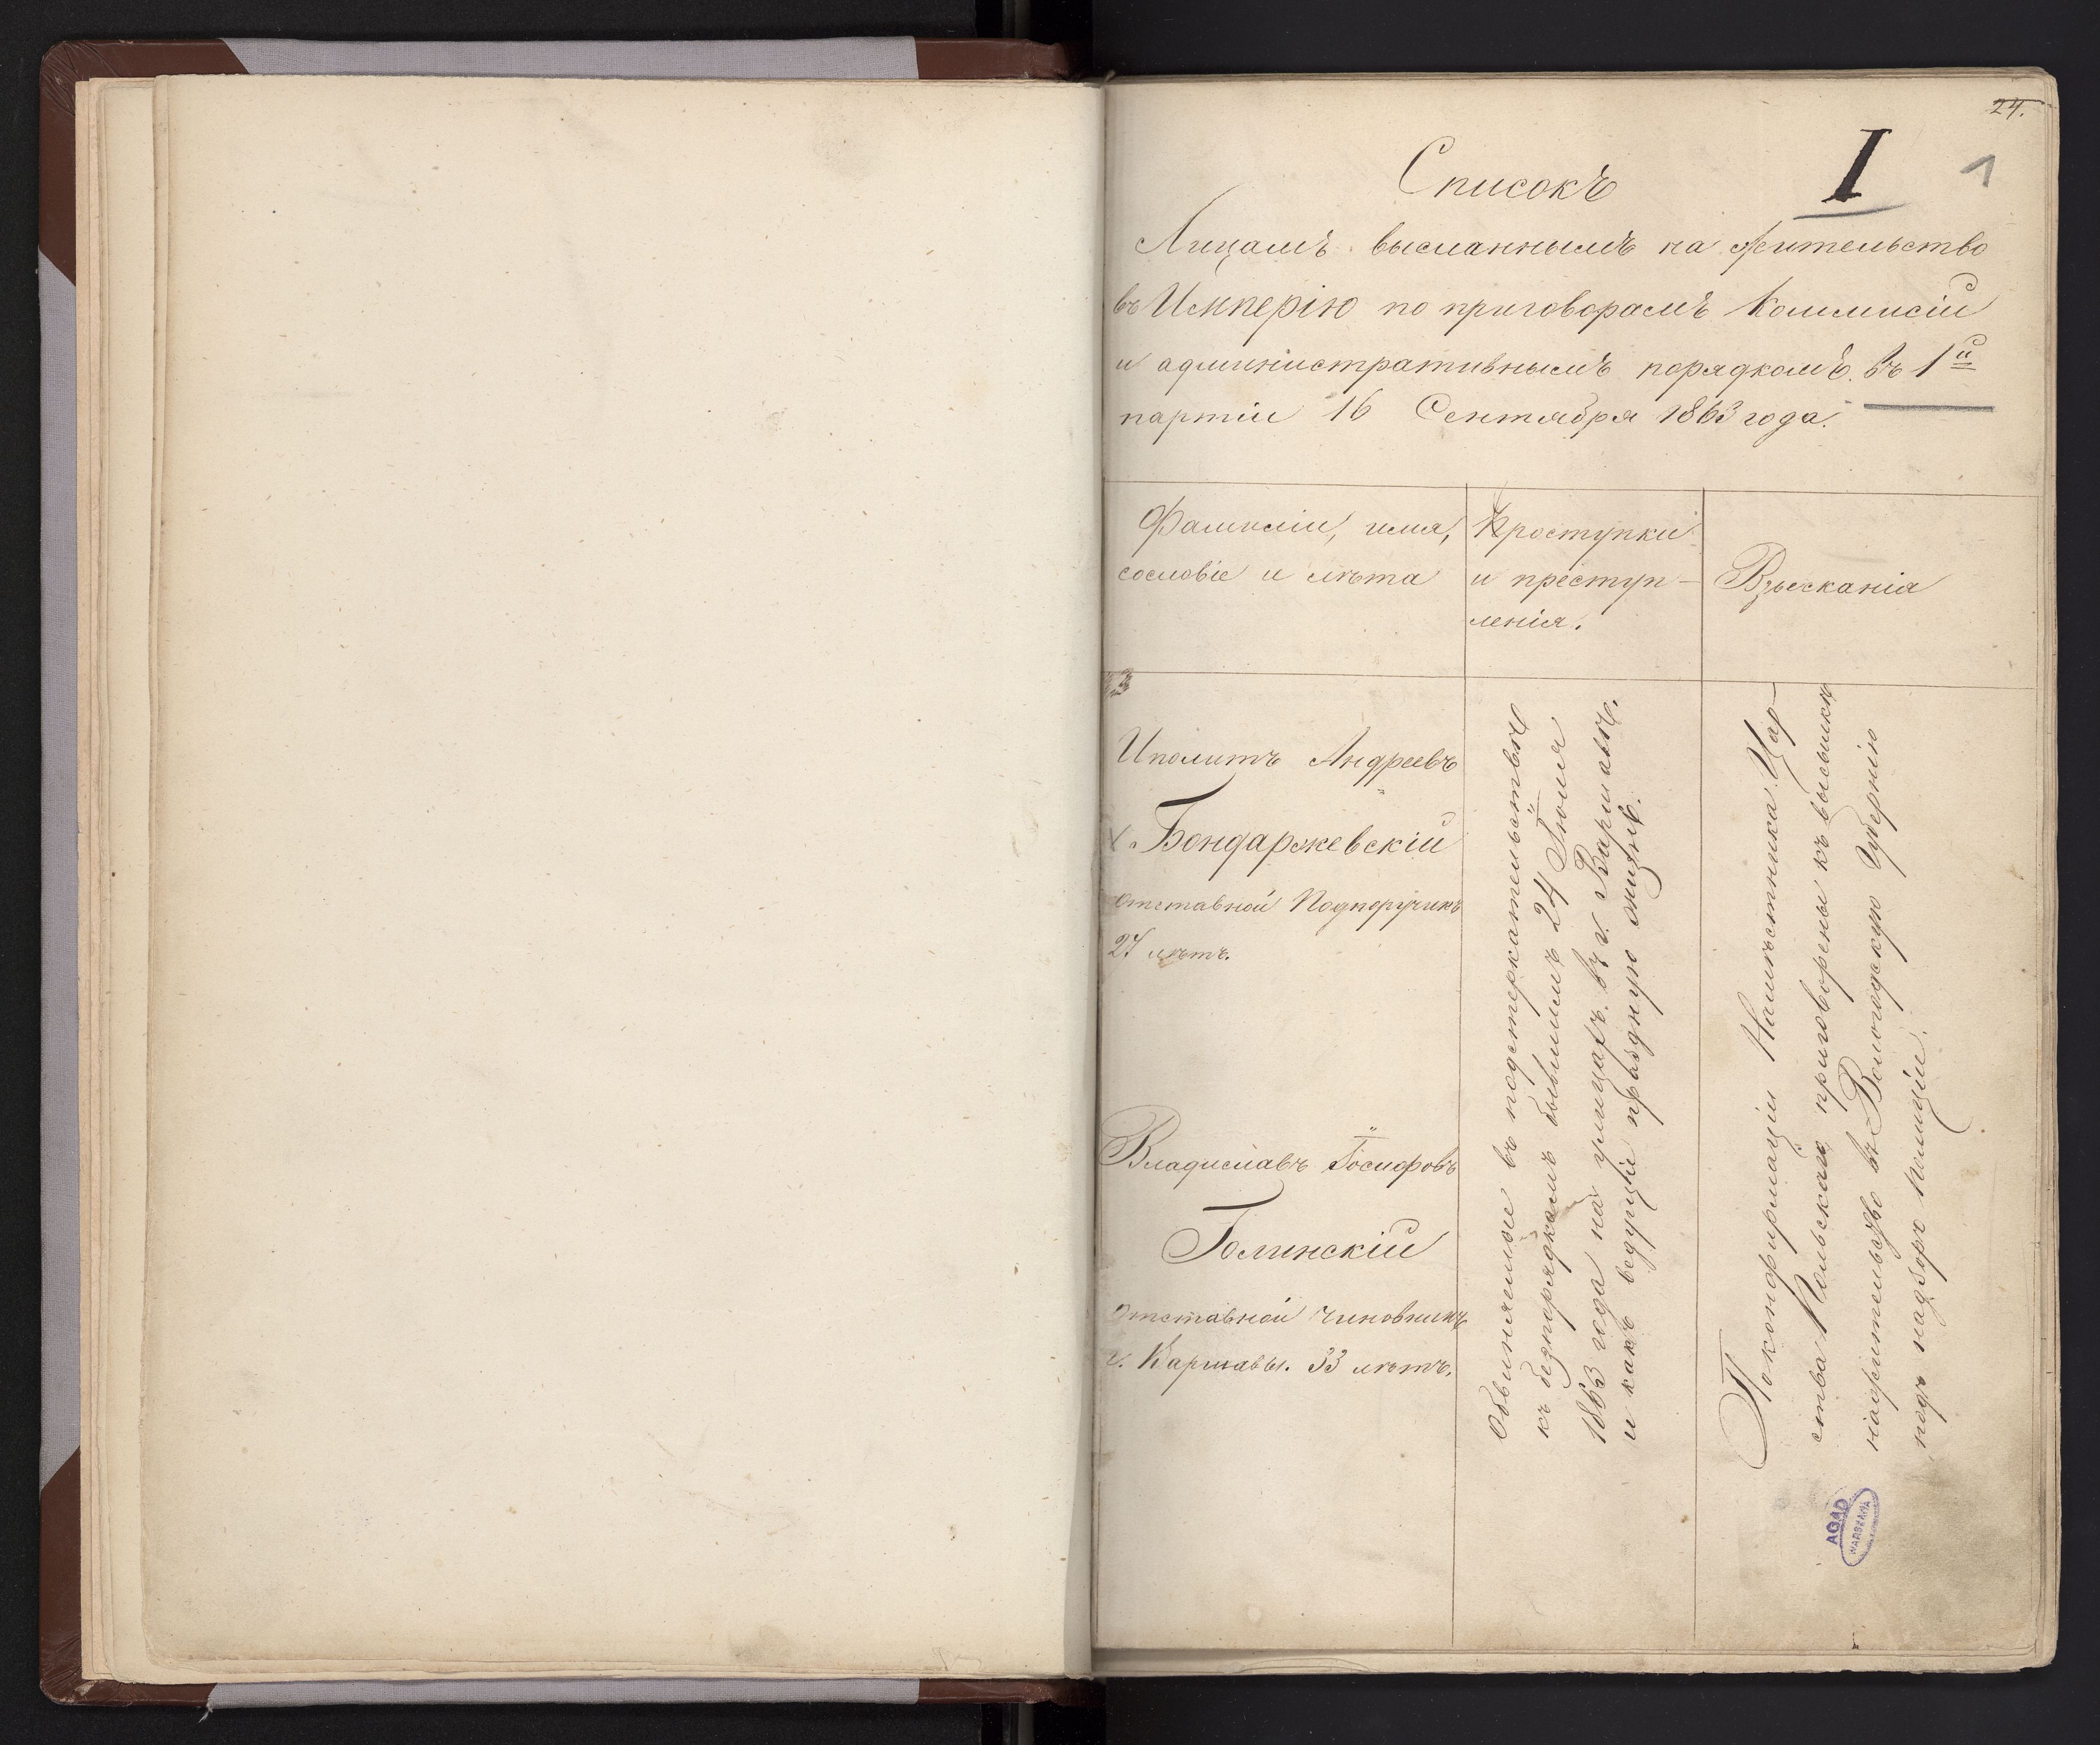 24.
I
1
Списокъ
Лицамъ высланнымъ на жительство
въ Имперію по приговорамъ Коммисіи
и административнымъ порядкомъ. въ 1й
партіи 16 Сентября 1863 года.
Фамиліи, имя,
сословіе и лѣта
Проступки
и преступ-
ленія.
Взысканія
Иполитъ Андреевъ
Бондаржевскій
отставной Подпоручикъ
27 лѣтъ.
Владиславъ Іосифовъ
Голинскій
Отставной чиновникъ
г. Варшавы. 33 лѣтъ.
Обвиняемые въ подстрекательствѣ
къ безпорядкамъ бывшимъ 24 Іюля
1863 года на улицахъ въ г. Варшавѣ.
и какъ ведущіе праздную жизнь.
По конфирмаціи Намѣстника Цар-
ства Польскаго приговорены къ высылкѣ
на жительство въ Вологодскую Губернію
подъ надзоръ полиціи.
AGAD
WARSZAWA